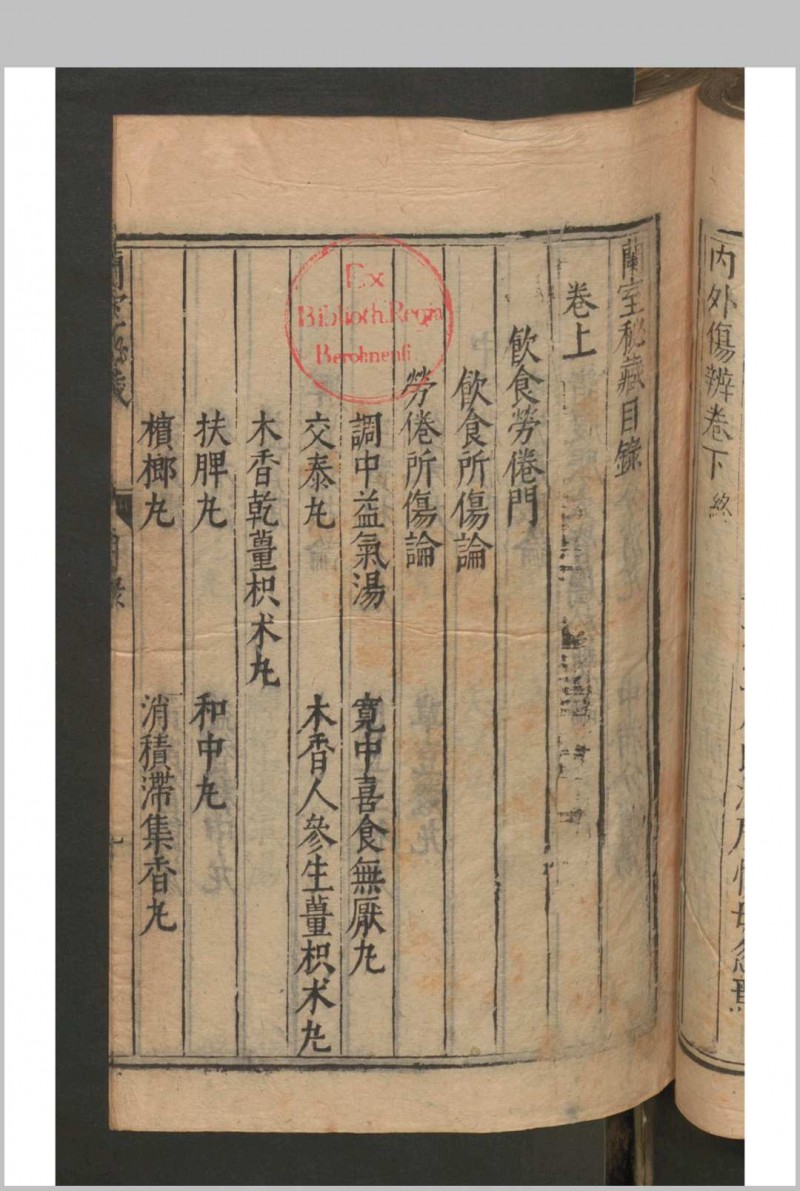 內外傷辨卷下 終
蘭室秘藏目錄
卷上
飲食勞倦門
飲食所傷論
勞倦所傷論
調中益氣湯 寬中喜食無厭丸
交泰丸 木香人參生薑枳术丸
木香乾薑枳术丸
扶脾丸 和中丸
檳榔丸 消積滯集香丸
蘭室秘藏
目錄
Ex
Biblioth. Regia
Berolinensi